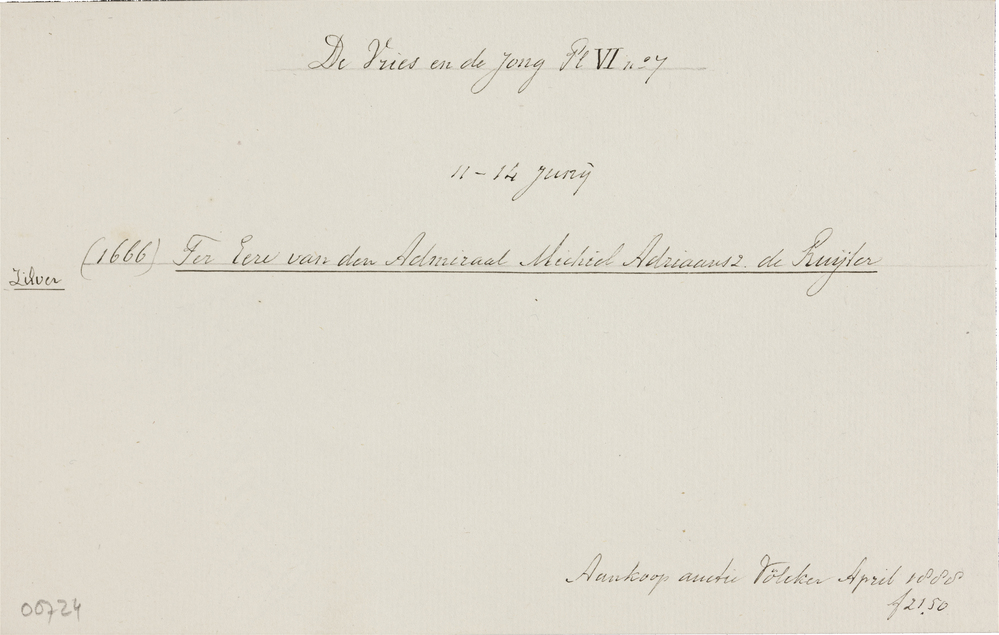 De Vries en de Jong Pl VI no 7
11 – 14 Junij
(1666) Ter Eere van den Admiraal Michiel Adriaansz. de Ruijter
Zilver
Aankoop auctie Völcker April 1888
f 21,50
00724